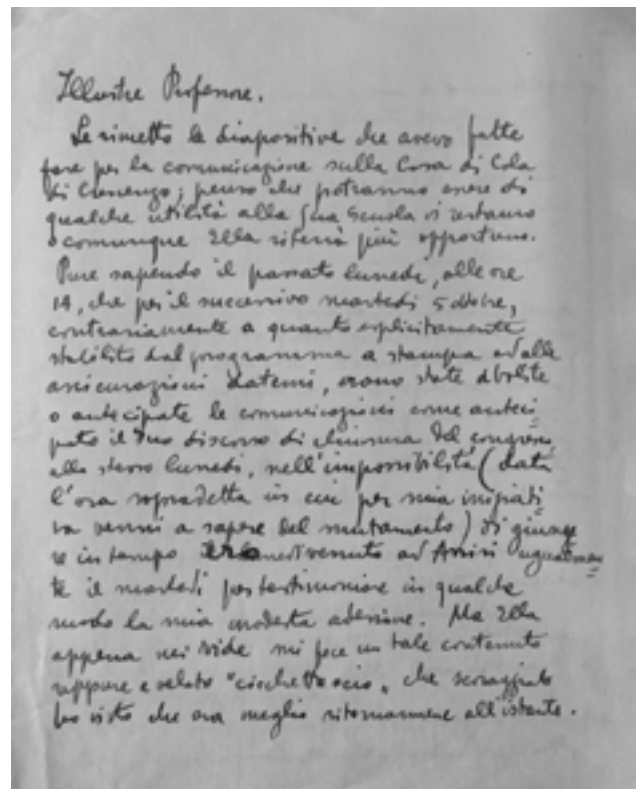 Illustre Professore.
Le rimetto le diapositive che avevo fatte
fare per la comunicazione sulla Casa di Cola
di ; penso che potranno essere di
qualche utilità alla Sua Scuola di restauro
o comunque Ella riterrà più opportuno.
Pure sapendo il passato lunedì, alle ore
14, che per il successivo martedì 5 ottobre,
contrariamente a quanto esplicitamente
stabilito dal programma a stampa ed alle
assicurazioni datemi, erano state abolite
o anticipate le comunicazioni come antici=
pato il Suo discorso di chiusura del congresso
allo stesso lunedì, nell'impossibilità (data
l'ora sopradetta in cui per mia iniziati
va venni a sapere del mutamento) di giunge
re in tempo ero venuto ad Assisi ugualmen=
te il martedì per testimoniare in qualche
modo la mia modesta adesione. Ma Ella
appena mi vide mi fece un tale contenuto
seppure e velato "cicchetto", che scoraggiato
ho visto che era meglio ritornarmene all'istante.